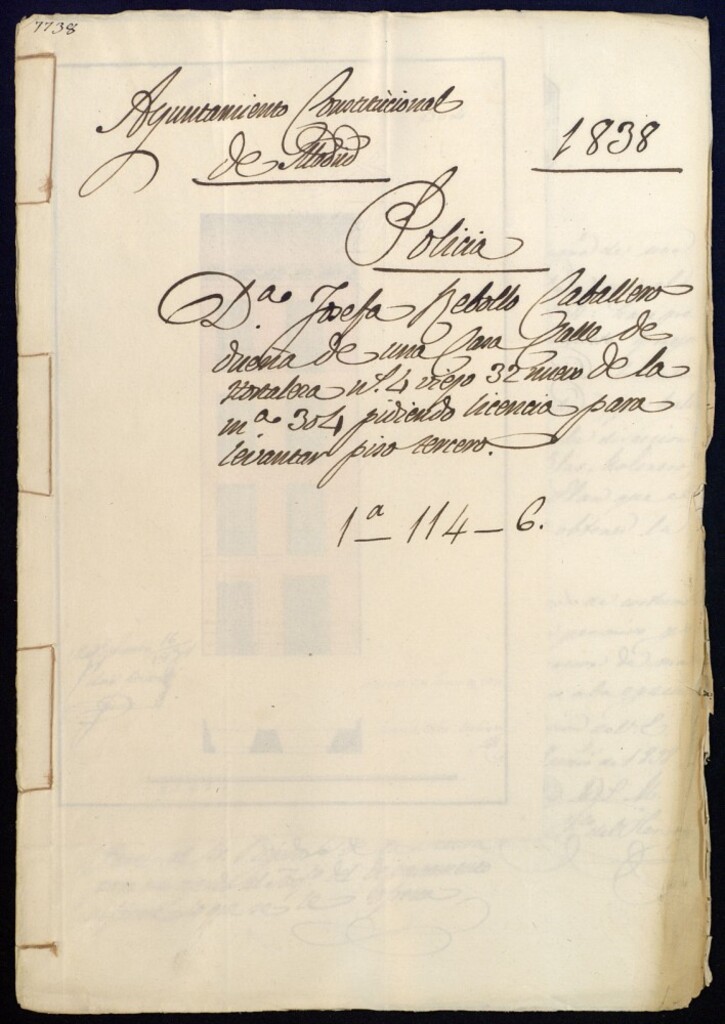 7738
Ayuntamiento Constitucional
de Madrid
1838
Policia
D.ª Josefa Rebollo Caballero
dueña de una Casa Calle de
Hortaleza n.º 4 viejo 32 nuevo de la
mª 304 pidiendo licencia para
levantar piso tercero.
1ª - 114 - 6.